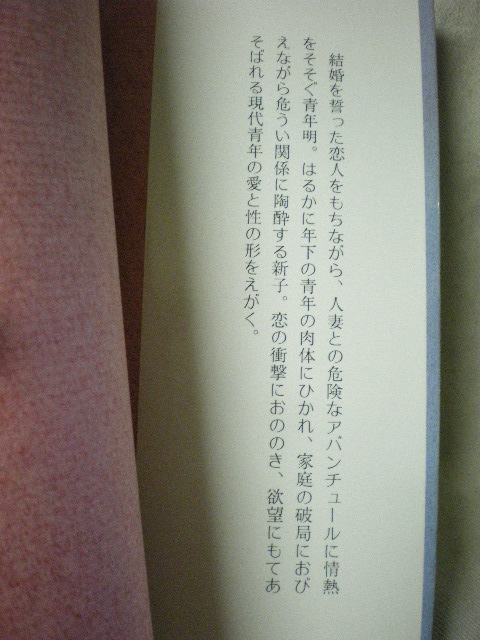 結婚を誓った恋人をもちながら、人妻との危険なアバンチュールに情熱
をそそぐ青年明。はるかに年下の青年の肉体にひかれ、家庭の破局におび
えながら危うい関係に陶酔する新子。恋の衝撃におののき、欲望にもてあ
そばれる現代青年の愛と性の形をえがく。